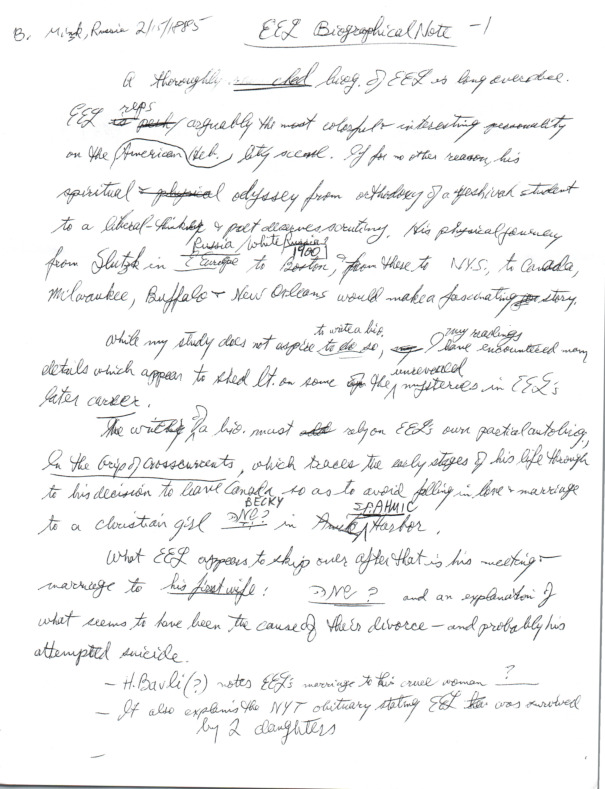 B. Minsk, Russia 2/15/1885 EEL Biographical Note -1
A thoroughly biog. of EEL is long overdue.
EEL reps arguably the most colorful & interesting personality
on the American Heb. lity scene. If for no other reason, his
spiritual & physical odyssey from orthodoxy of a yeshivah student
to a liberal-thinking & poet deserves scrutiny. His physical journey
Russia/White Russia 1900
from Slutzk in E Europe to Boston, & from there to NYS, to Canada,
Milwaukee, Buffalo & New Orleans would make a fascinating story.
to write a bio. my readings
While my study does not aspire to do so, I have encountered many
unrevealed
details which appear to shed lt. on some of the mysteries in EEL's
later career.
The writing of a bio. must rely on EEL's own partial autobiog,
In the Grip of Crosscurrents, which traces the early stages of his life through
to his decision to leave Canada so as to avoid falling in love & marriage
BECKY
to a christian girl ?שם in Harbor.
What EEL appears to skip over after that is his meeting &
marriage to his first wife: ? שם and an explanation of
what seems to have been the cause of their divorce – and probably his
attempted suicide.
- H. Bavli (?) notes EEL's marriage to this cruel woman ?
- It also explains the NYT obituary stating EEL was survived
by 2 daughters